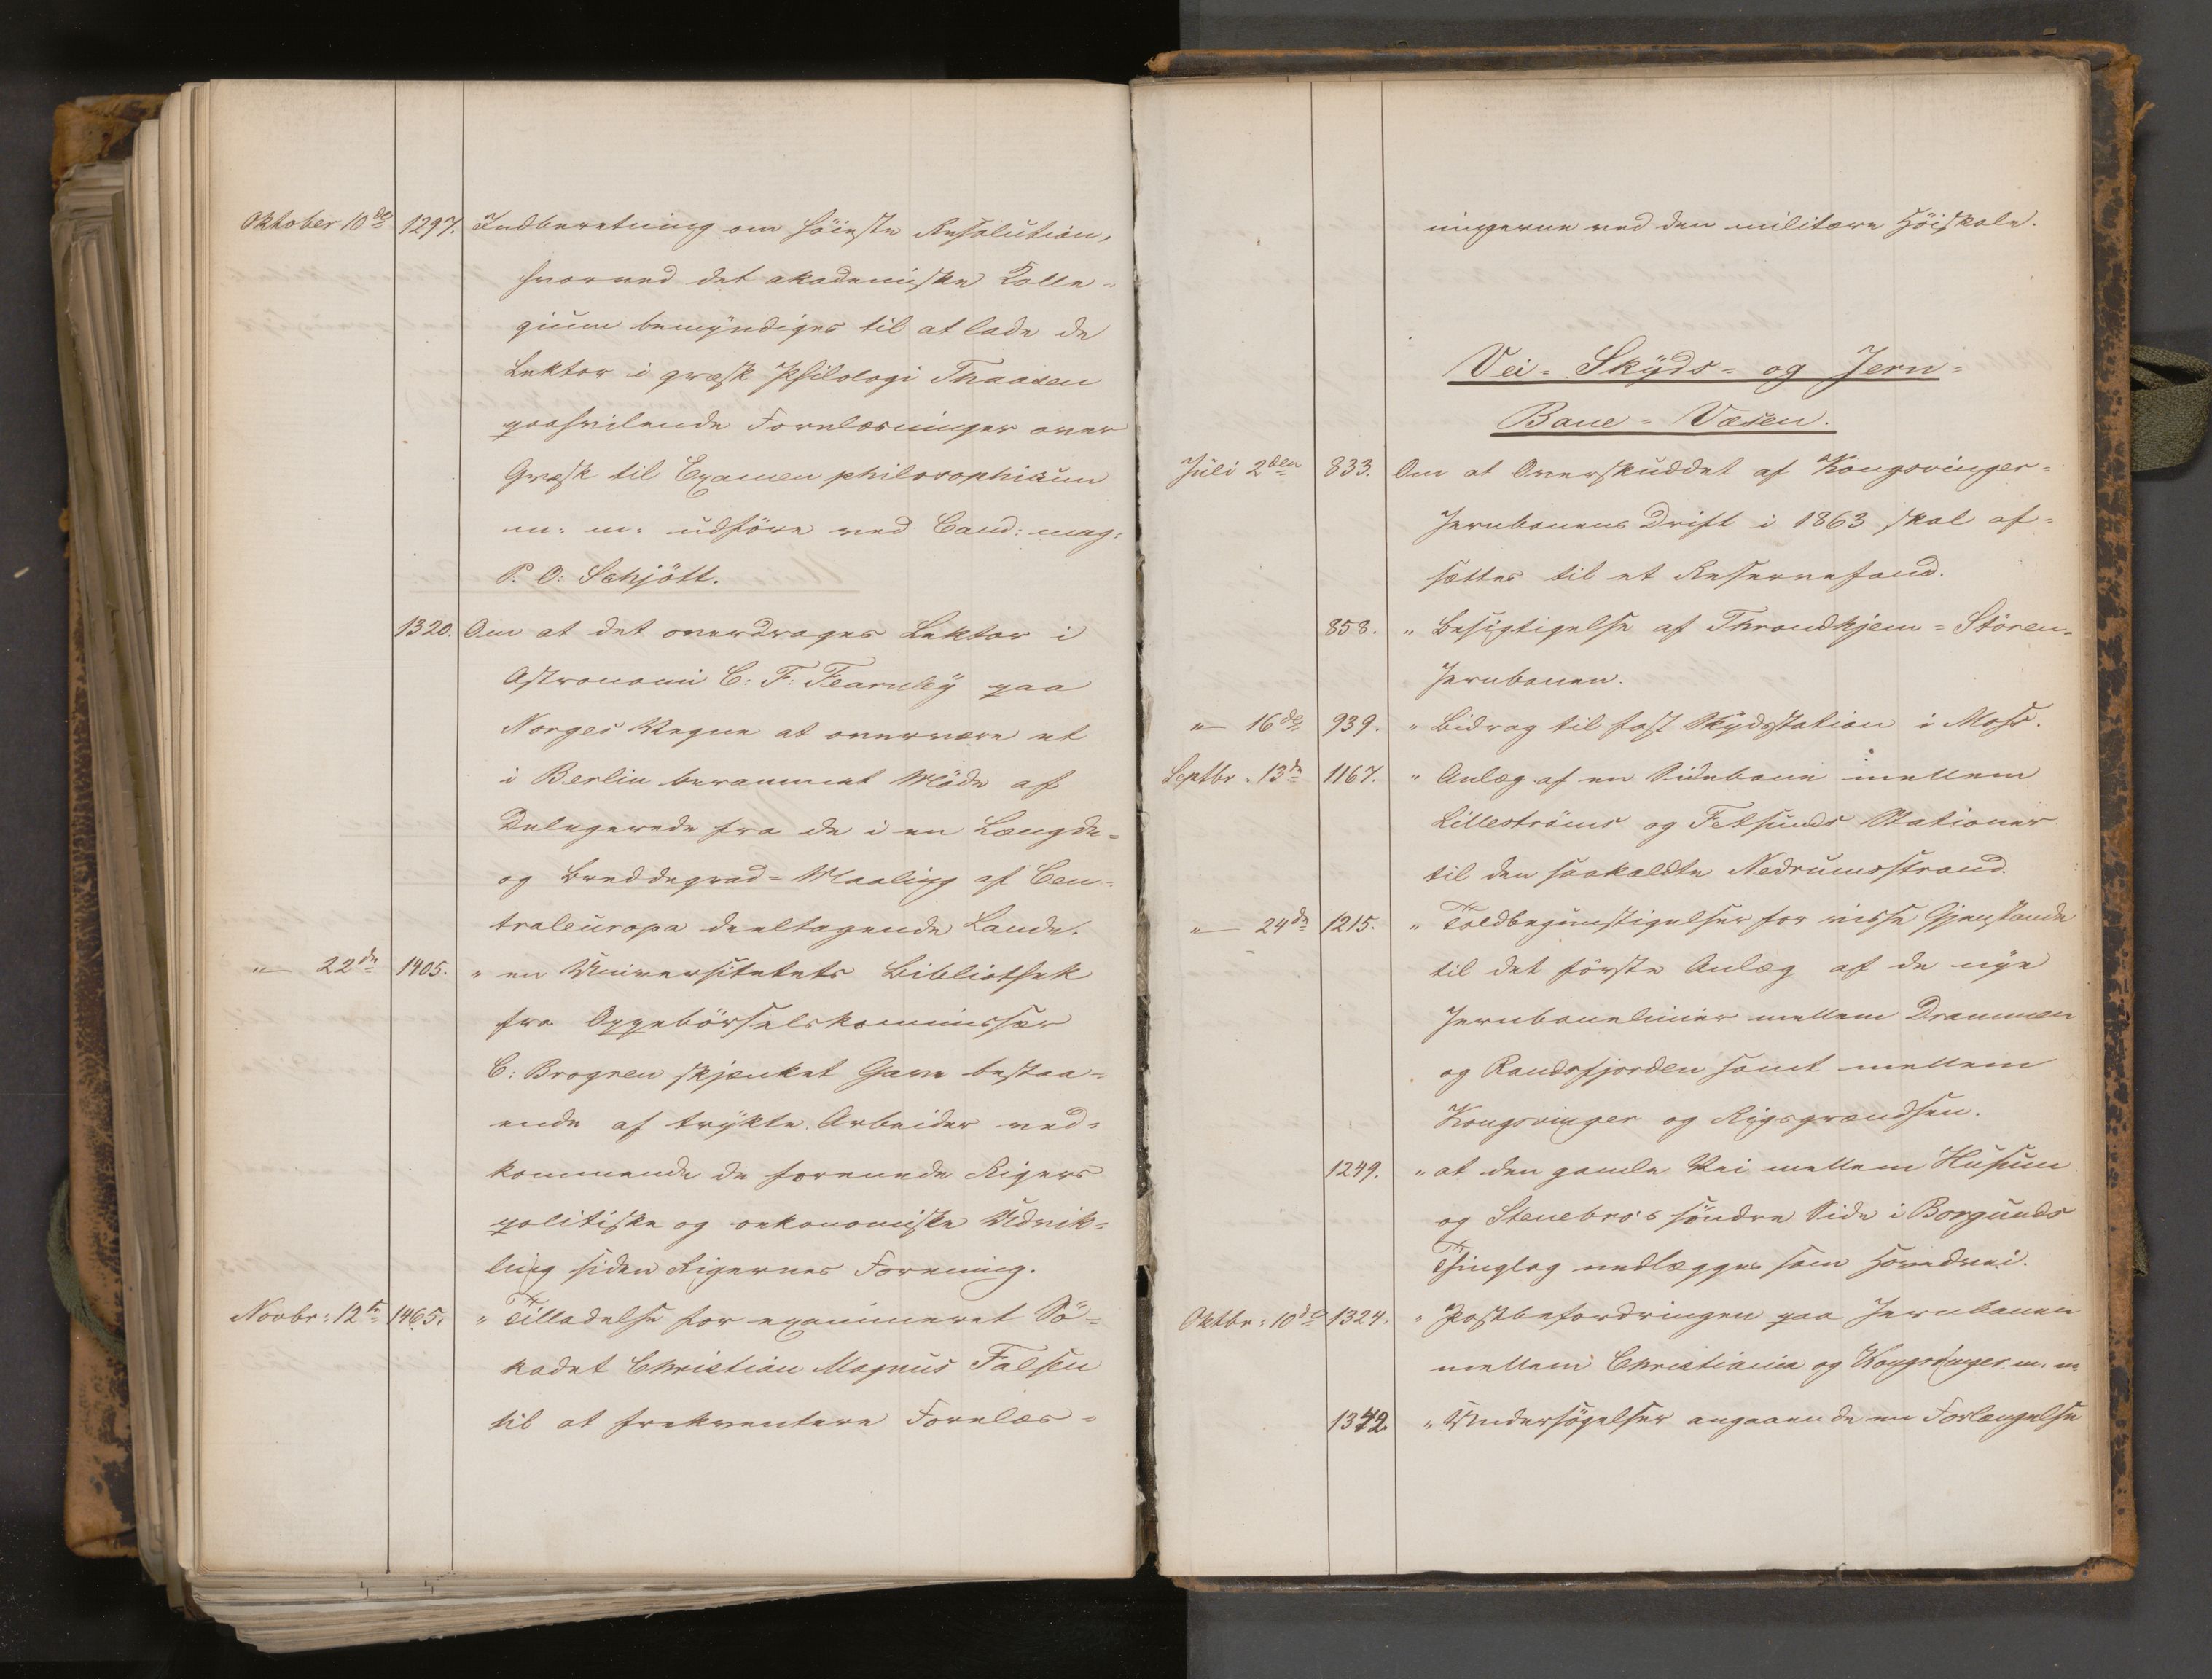 Oktober 10de 1297. Indberetning om höieste Resolution,
hvorved det akademiske Colle-
gium bemyndiges til at lade de
Lektor i græsk Philologi Thaasen
paahvilende Forelæsninger over
Græsk til Examen philosophicum
m. m. udföre ved Cand: mag:
P. O: Schjött.
1320. Om at det overdrages Lektor i
Astronomi C: F: Fearnley paa
Norges Vegne at overvære et
i Berlin berammet Möde af
Delegerede fra de i en Længde-
og Breddegrad-Maaling af Cen-
traleuropa deeltagende Lande.
"— 22de 1405. " en Universitetets Bibliothek
fra Oppebörselskommissær
C: Brogren skjænket Gave bestaa-
ende af trykte Arbeider ved-
kommende de forenede Rigers
politiske og oekonomiske Udvik-
ling siden Rigernes Forening.
Novbr: 12te 1465. " Tilladelse for examineret Sö-
kadet Christian Magnus Falsen
til at frekventere Forelæs-
ningerne ved den militære Höiskole.
Vei- Skyds- og Jern-
Bane-Væsen.
Juli 2den 833. Om at Overskuddet af Kongsvinger-
Jernbanens Drift i 1863 skal af-
sættes til et Reservefond.
858. " Besigtigelse af Throndhjem-Stören-
Jernbanen.
"— 16de 939. " Bidrag til fast Skydsstation i Moss.
Septbr. 13de 1167. " Anlæg af en Sidebane mellem
Lilleströms og Fetsunds Stationer
til den saakaldte Nedrumsstrand.
"— 24de 1215. " Toldbegunstigelser for visse Gjenstande
til det förste Anlæg af de nye
Jernbanelinier mellem Drammen
og Randsfjorden samt mellem
Kongsvinger og Rigsgrændsen.
1249. " at den gamle Vei mellem Husum
og Stenebro's söndre Side i Borgunds
Thinglag nedlægges som Hovedvei.
Oktbr: 10de 1324. " Postbefordringen paa Jernbanen
mellem Christiania og Kongsvinger m. m.
1342. " Undersögelser angaaende en Forlængelse